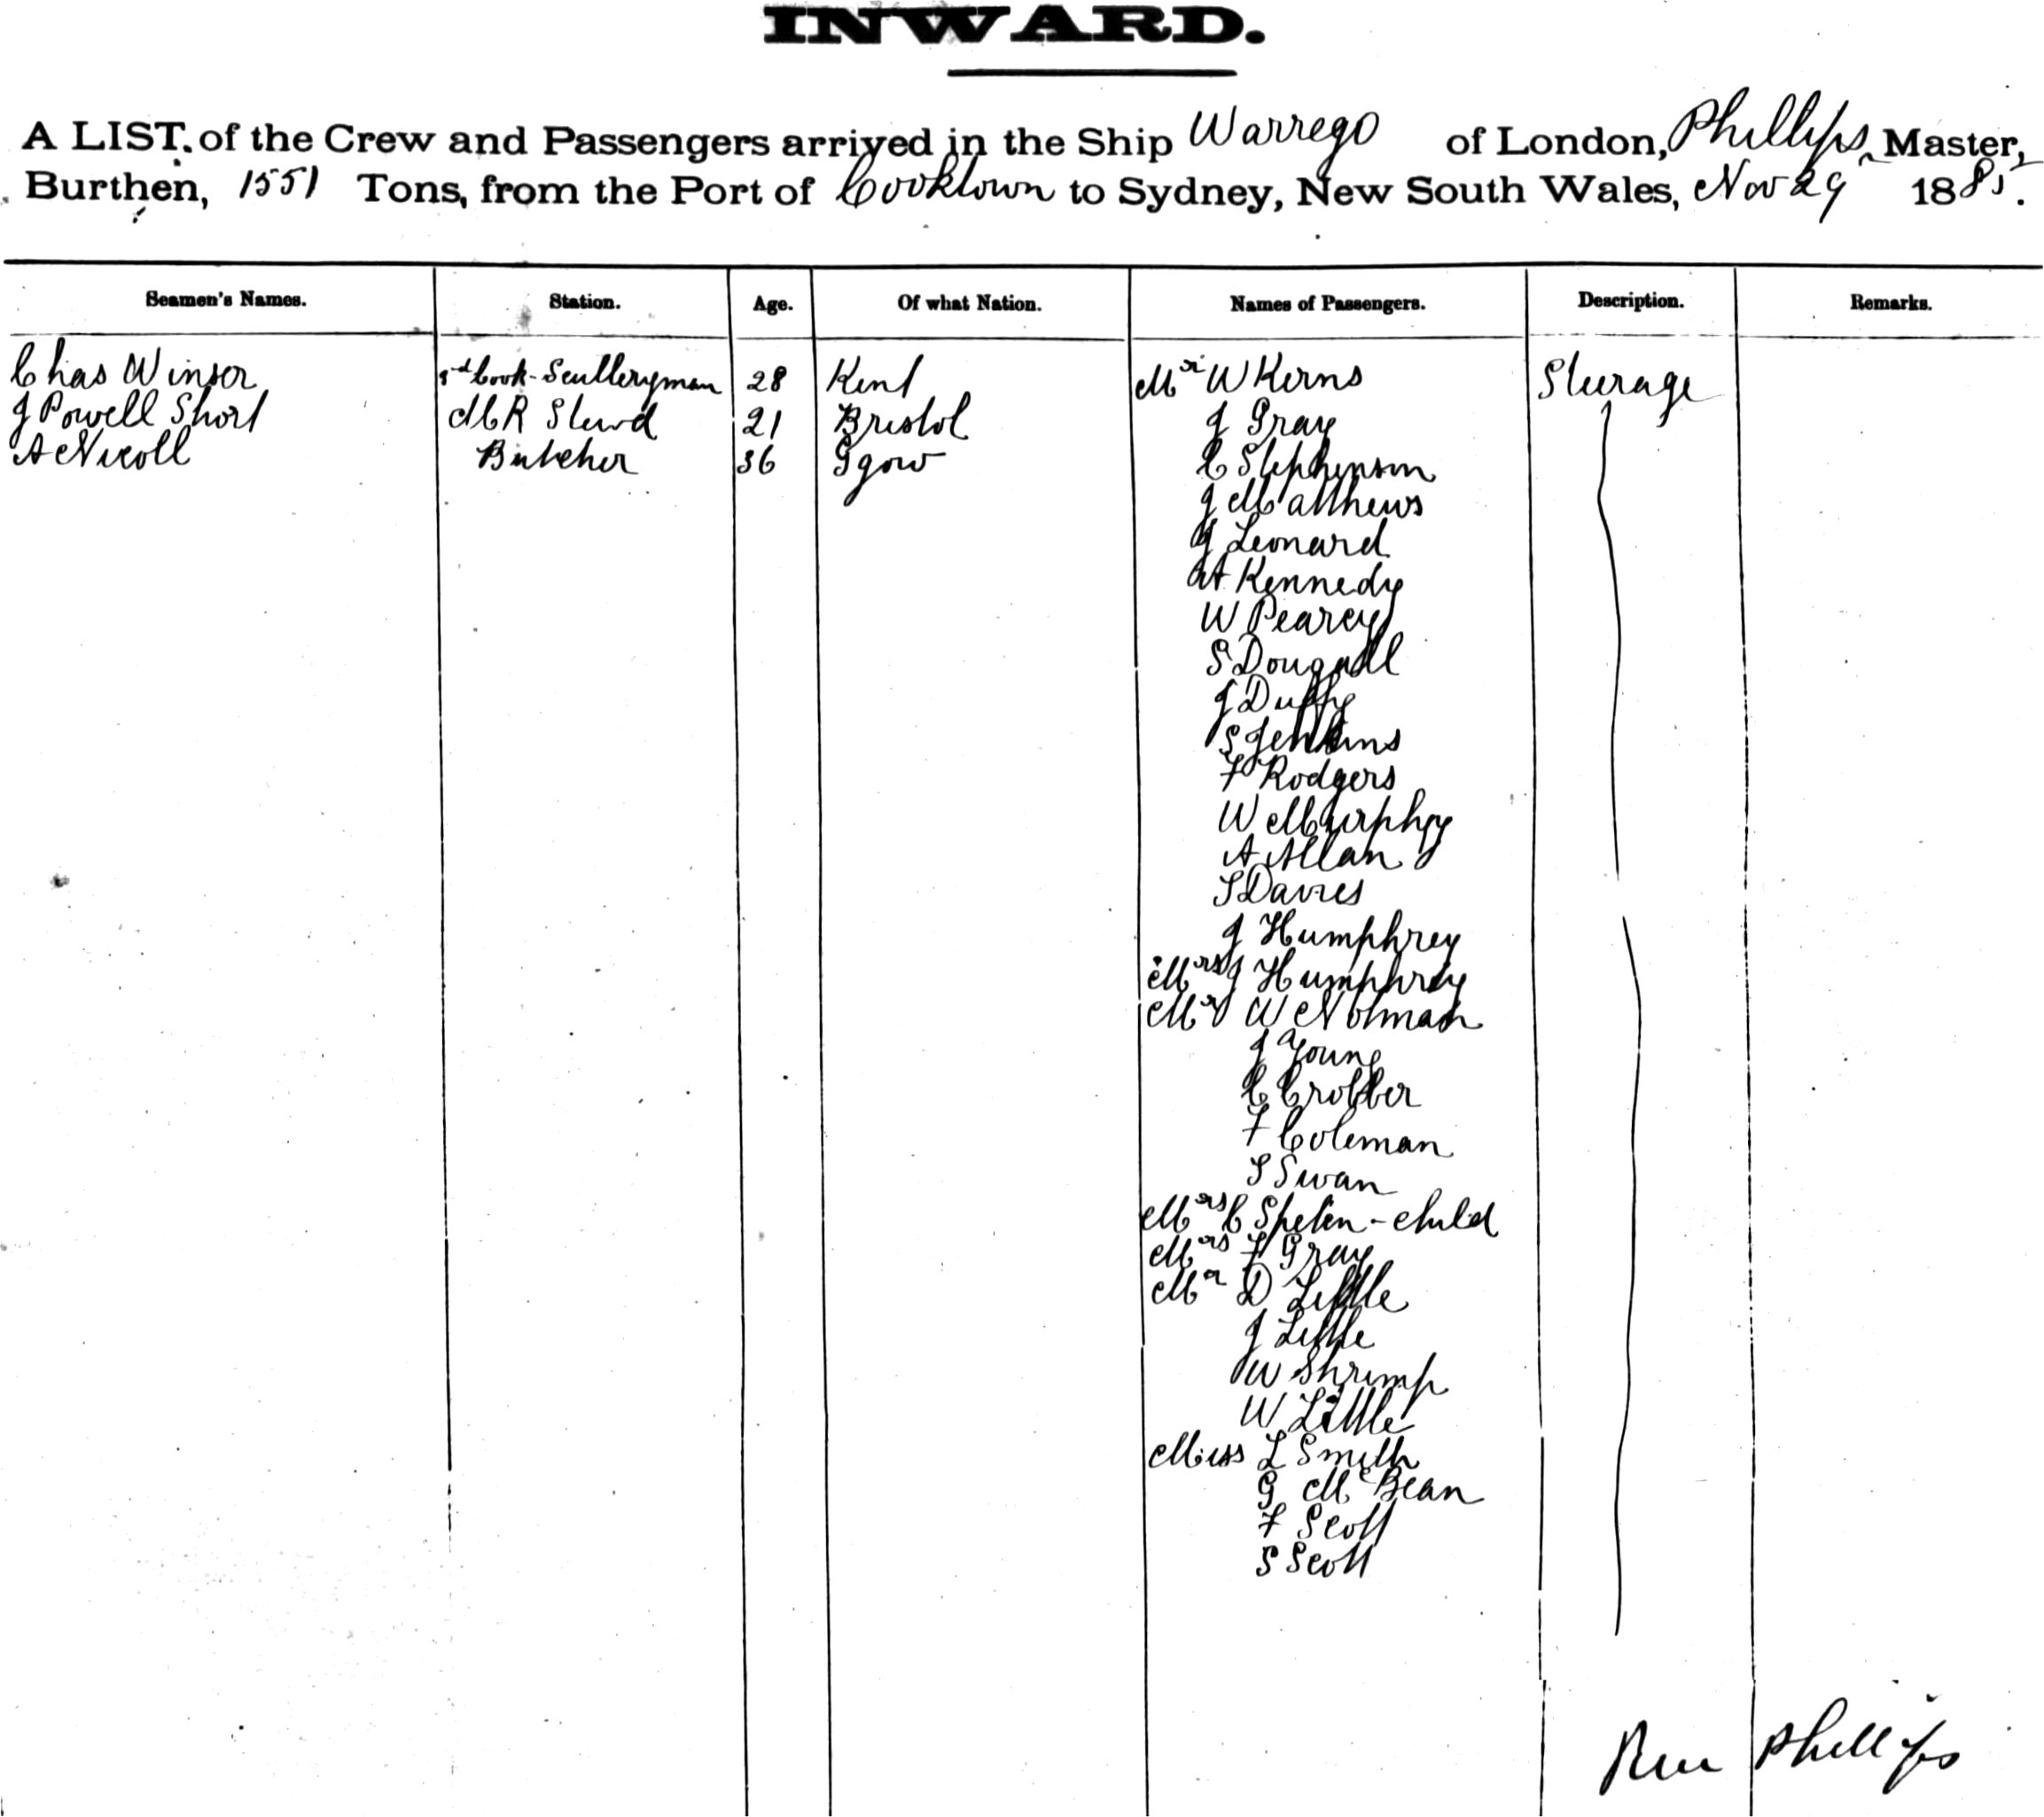 INWARD.
A LIST of the Crew and Passengers arrived in the Ship Warrego of London, Phillips Master,
Burthen, 1551 Tons, from the Port of Cooktown to Sydney, New South Wales, Nov 29 1885.
Seamen's Names. Station. Age. Of what Nation. Names of Passengers. Description. Remarks.
Chas Winser Cook - Sculleryman 28 Kent Mr W Kerns Steurage
J Powell Short M R Stewd 21 Bristol J Gray
A Nicoll Butcher 36 Ggow C Stephenson
J Matthews
J Leonard
A Kennedy
W Pearcy
S Dougall
J Duffy
S Jenkins
F Rodgers
W Murphy
A Allan
S Davies
J Humphrey
Mrs J Humphrey
Mr W Notman
J Young
C
F Coleman
S Swan
Mrs C - child
Mrs F Gray
Mr D Little
J Little
W Shrimp
W Little
Miss L Smith
G McBean
F Scott
S Scott
Phillips